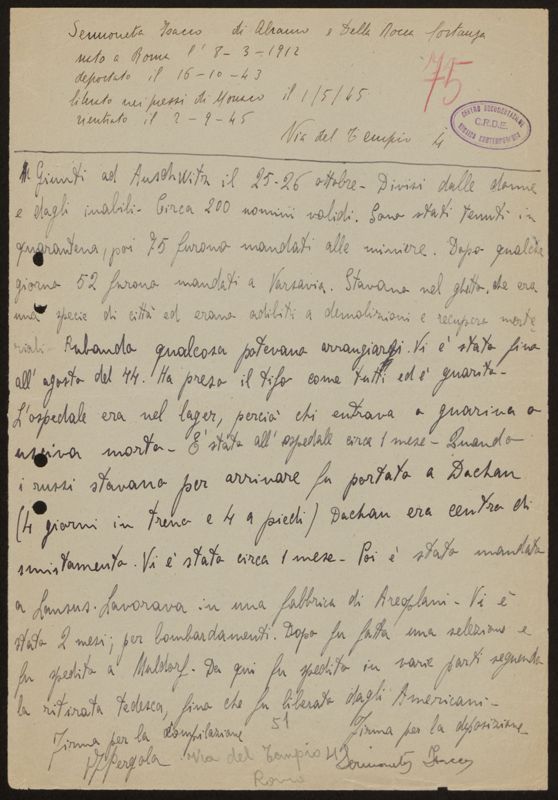 Sermoneta Isacco di Abramo e Della Rocca Costanza
nato a Roma l' 8-3-1912
deportato il 16-10-43
liberato nei pressi di Monaco il 1/5/45
rientrato il 2-9-45
Via del Tempio 4
75
CENTRO DOCUMENTAZIONE
C.R.D.E.
EBRAICA CONTEMPORANEA
Giunti ad Auschwitz il 25-26 ottobre - Divisi dalle donne
e dagli inabili - Circa 200 uomini validi. Sono stati tenuti in
quarantena, poi 75 furono mandati alle miniere. Dopo qualche
giorno 52 furono mandati a Varsavia. Stavano nel ghetto, che era
una specie di città ed erano adibiti a demolizioni e recupero mate
riali - Rubando qualcosa potevano arrangiarsi. Vi è stato fino
all' agosto del 44. Ha preso il tifo come tutti ed è guarito -
L'ospedale era nel lager, perciò chi entrava o guariva o
usciva morto - E' stato all' ospedale circa 1 mese - Quando
i russi stavano per arrivare fu portato a Dachau
(4 giorni in treno e 4 a piedi) Dachau era centro di
smistamento. Vi è stato circa 1 mese - Poi è stato mandato
a Lansus. Lavorava in una fabbrica di Areoplani - Vi è
stato 2 mesi, per bombardamenti. Dopo fu fatta una selezione e
fu spedito a Muldorf. Da qui fu spedito in varie parti seguendo
la ritirata tedesca, fino che fu liberato dagli Americani -
51
Firma per la Compilazione
Firma per la deposizione
Pergola
Via del Tempio 4
Roma
Sermoneta Isacco